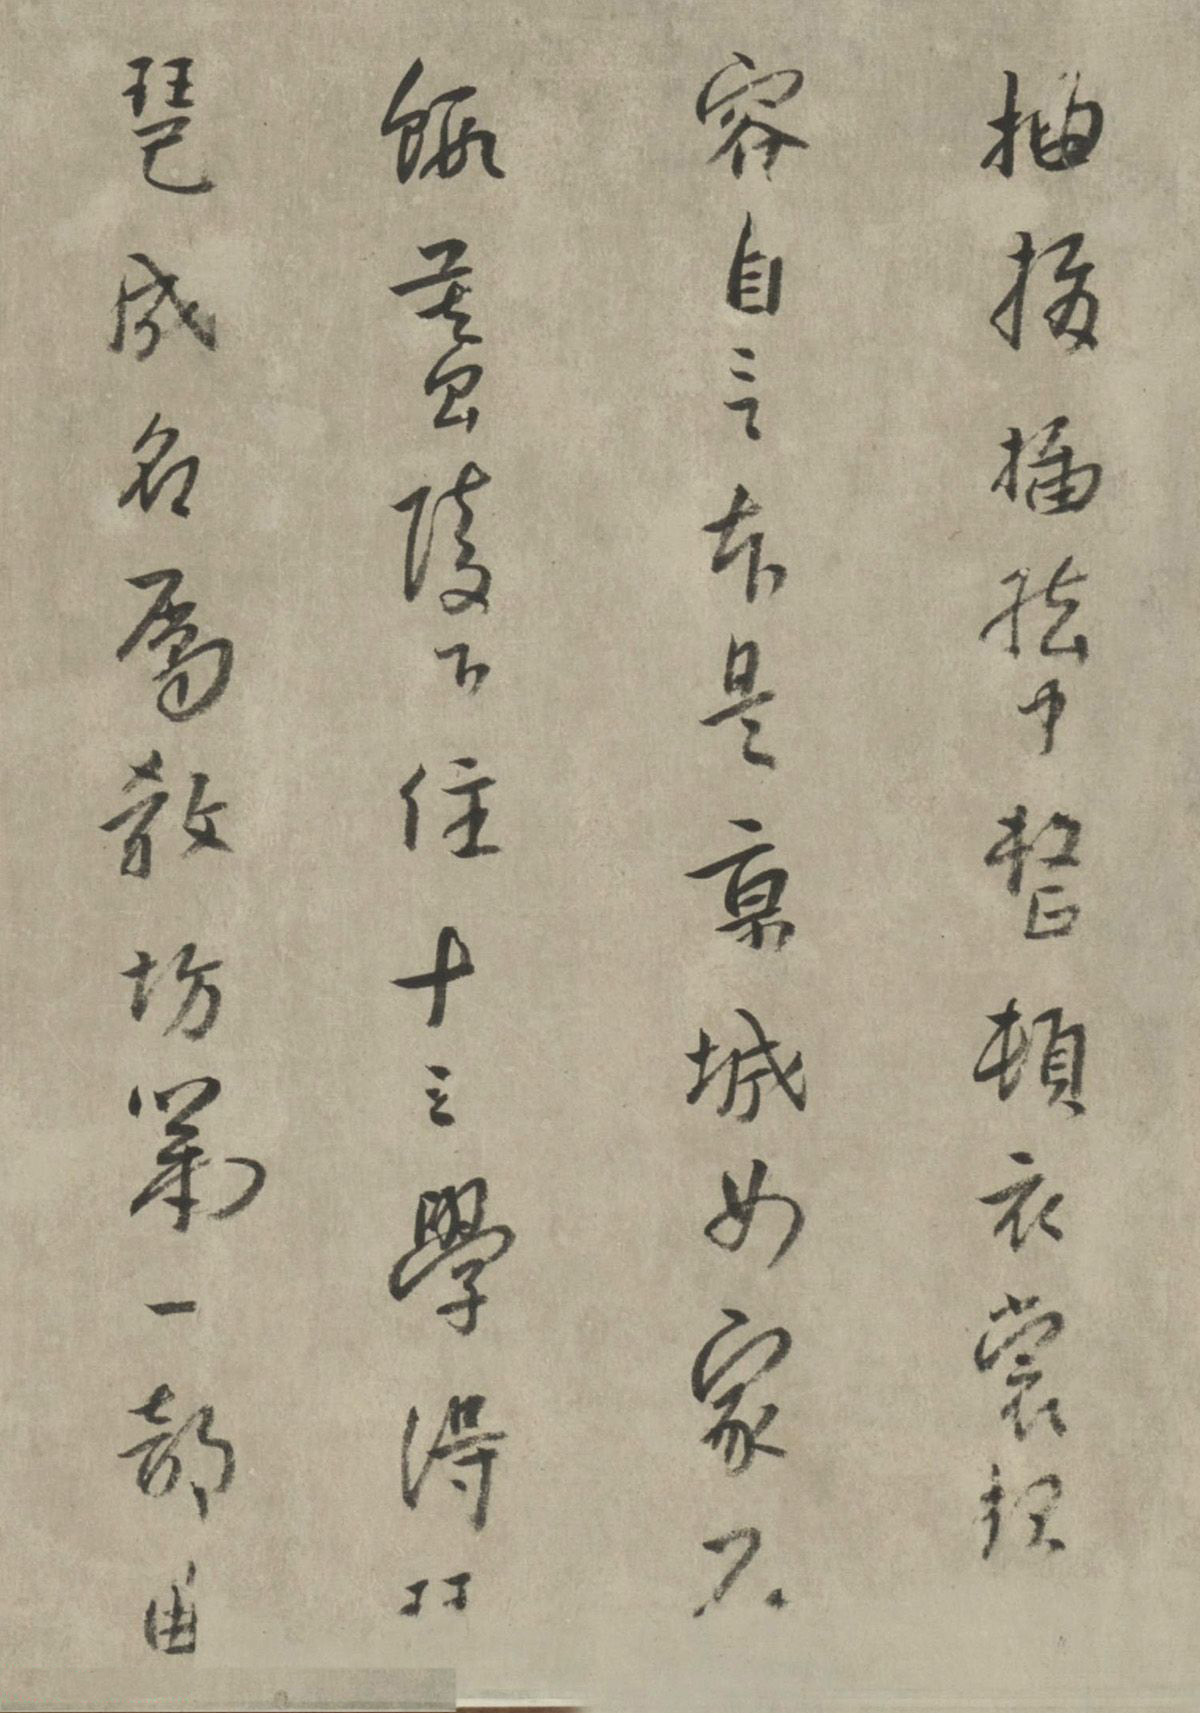 抽撥插絃中整頓衣裳起
容自言本是京城女家在
鰕蟇陵下住十三學得琵
琶成名屬教坊第一部曲